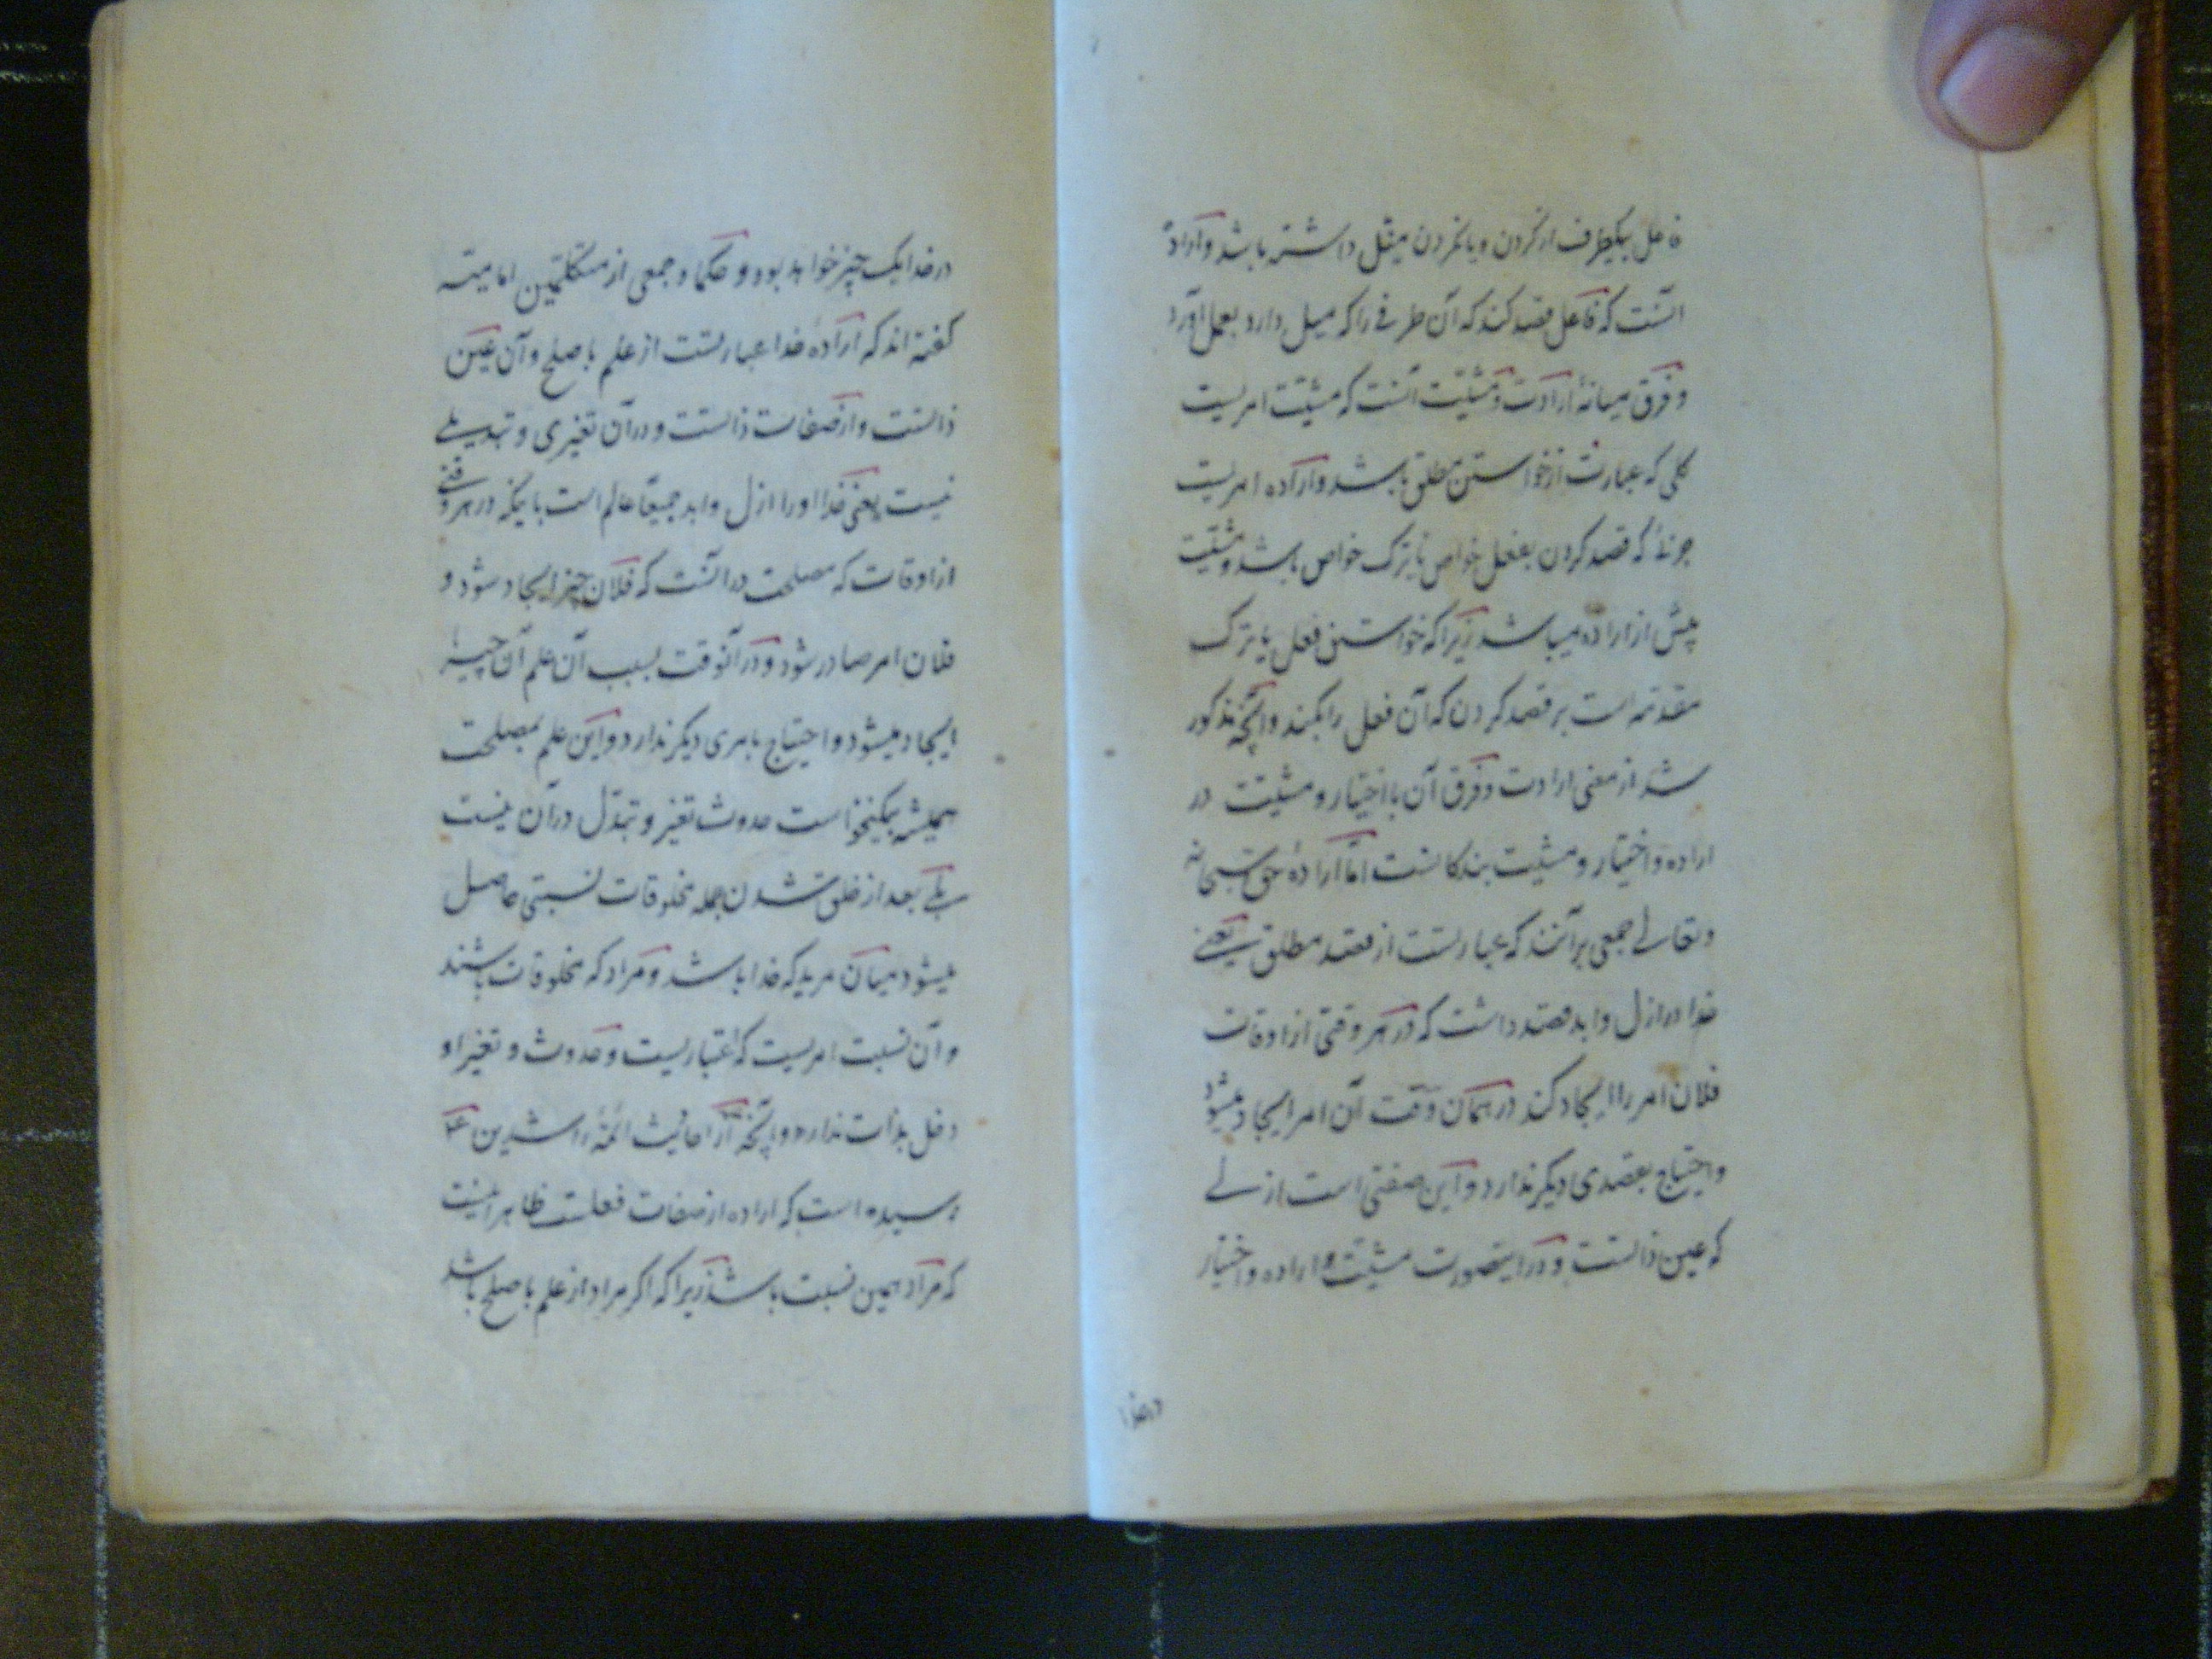 فاعل بیکطرف از کردن و یا نکردن میل داشته باشد و اراده
انست که فاعل قصد کند که آن طرفی را که میل دارد بعمل آورد
و فرق میانهٔ ارادت و مشیّت آنست که مشیّت امریست
کلی که عبارت از خواستن مطلق باشد و اراده امریست
جزئی که قصد کردن بفعل خواص یا ترک خواص باشد و مشیّت
پیش از اراده میباشد زیرا که خواستن فعل یا ترک
مقدّمه است بر قصد کردن که آن فعل را بکند و آنچه مذکور
شد از معنی ارادت و فرق آن با اختیار و مشیّت در
اراده و اختیار و مشیّت بندکانست امّا ارادهٔ حق سبحانه
و تعالی جمعی برآنند که عبارتست از قصد مطلق یعنی
خدا در ازل و ابد قصد داشت که در هر وقتی از اوقات
فلان امر را ایجاد کند در همان وقت آن امر ایجاد میشود
و احتیاج بقصدی دیگر ندارد و این صفتی است ازلی
که عین ذاتست و در اینصورت مشیّت و اراده و اختیار
در خدا
در خدا یک چیز خواهد بود و حکما و جمعی از متکلّمین امامیّه
گفته اند که ارادهٔ خدا عبارتست از علم باصلح و آن عین
ذاتست و از صفات ذاتست و در آن تغیری و تبدیلی
نیست یعنی خدا او را ازل و ابد جمیعاً عالم است باینکه در هر وقتی
از اوقات که مصلحت در انست که فلان چیز ایجاد شود و
فلان امر صادر شود و در آنوقت بسبب آن علم آن چیز
ایجاد میشود و احتیاج بامری دیگر ندارد و این علم بمصلحت
همیشه بیکنحو است حدوث تغیر و تبدّل در آن نیست
بلی بعد از خلق شدن جمله مخلوقات نسبتی حاصل
میشود میان مرید که خدا باشد و مراد که مخلوقات باشند
و آن نسبت امریست که اعتباریست و حدوث و تغیر او
دخل بذات ندارد و آنچه از احادیث ائمّهٔ راشدین ع
رسیده است که اراده از صفات فعلست ظاهر اینست
که مراد همین نسبت باشد زیرا که اکر مراد از علم باصلح باشد